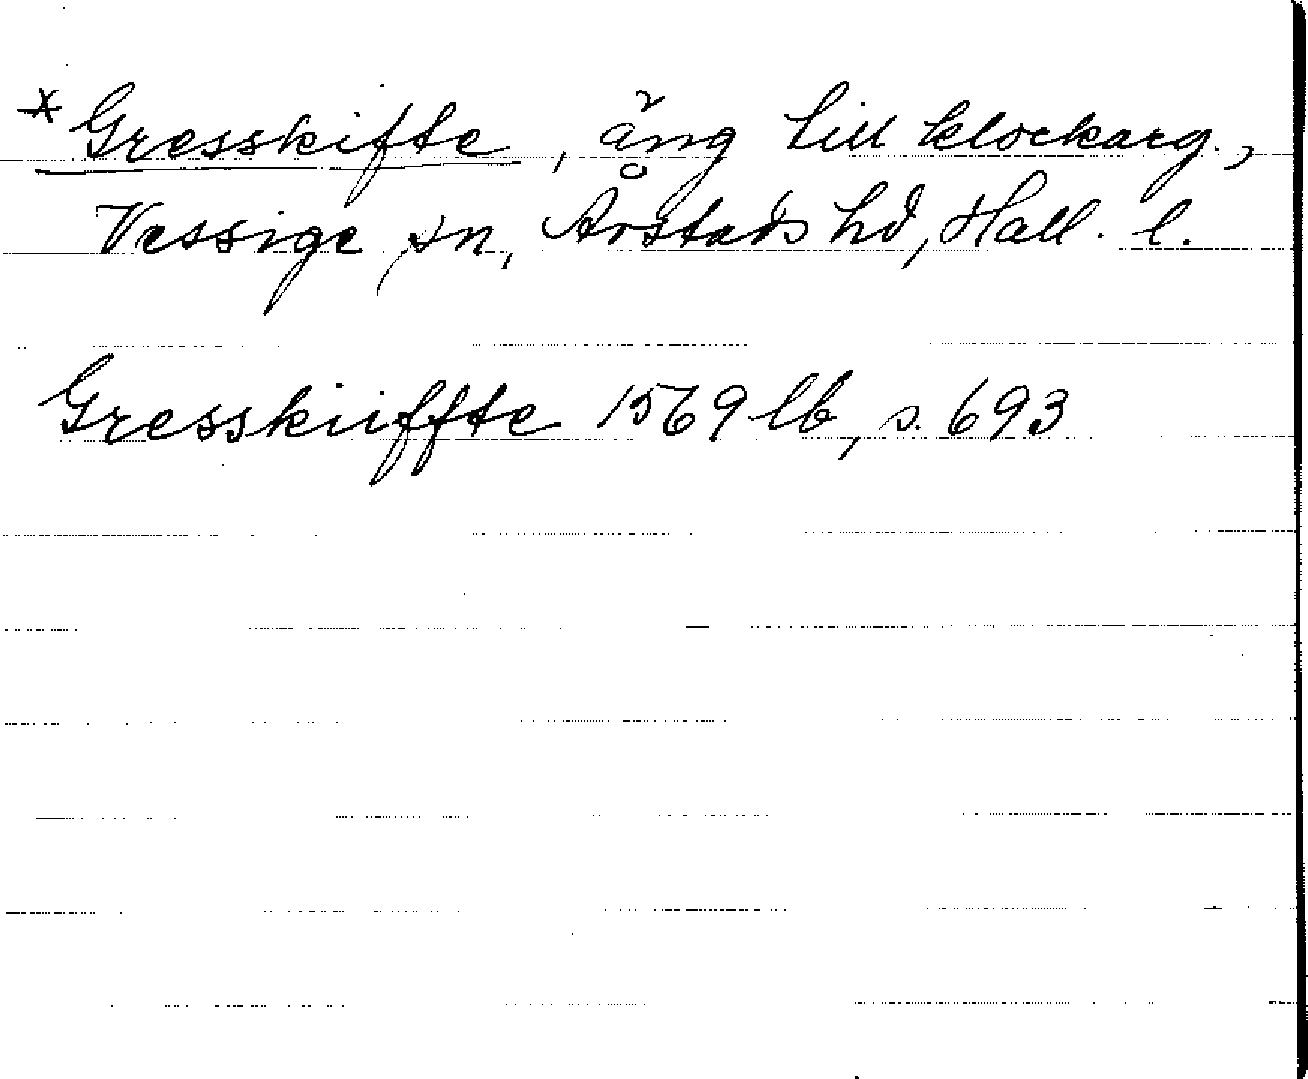 *Gresskifte, äng till klockarg.,
Vessige sn, Årstads hd, Hall. l.
Gresskiffte 1569 lb, s. 693